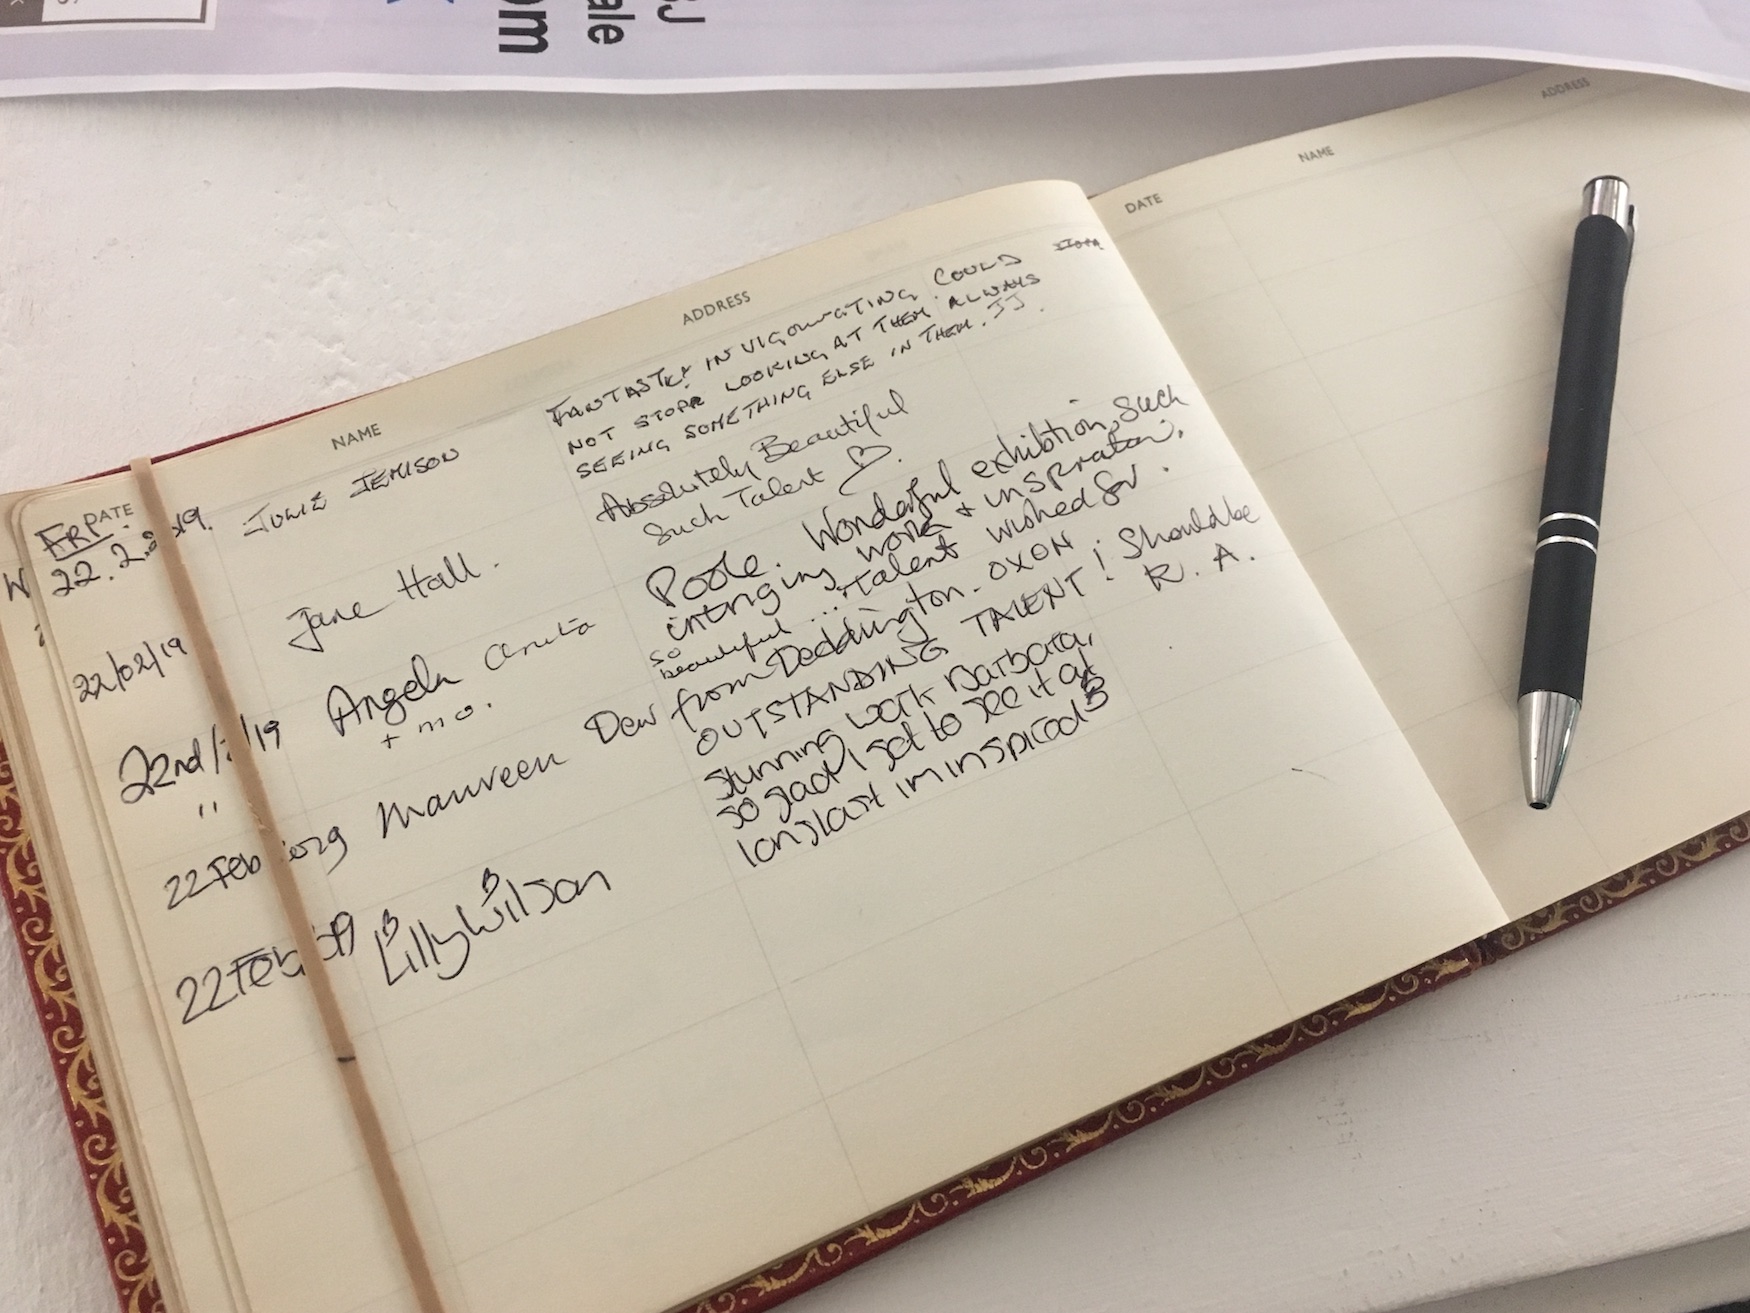 om
ale
DATE
NAME
ADDRESS
DATE
NAME
ADDRESS
FRI
22.2.2019.
JULIE JEMISON
FANTASTIC! INVIGORATING COULD
NOT STOPP LOOKING AT THEM ALWAYS
SEEING SOMETHING ELSE IN THEM. JJ.
22/02/19
Jane Hall.
Absolutely Beautiful
Such Talent
22nd/2/19
Angela
+ mo.
Poole. Wonderful exhibition, such
intriging work + inspiration.
so beautiful ... Talent wished for.
"
from Deddington. OXON.
22 Feb 2019
Maureen Dew
OUTSTANDING TALENT! Should be
R. A.
22 Feb 2019
Lilly Wilson
Stunning work Barbara,
so glad I got to see it at
long last im inspired